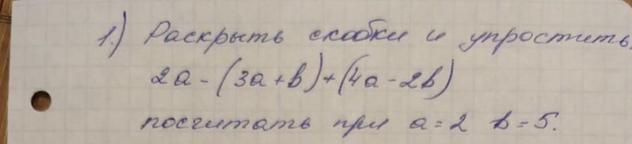 1.) Раскрыть скобки и упростить.
2a - (3a + b) + (4a - 2b)
посчитать при a = 2 b = 5.